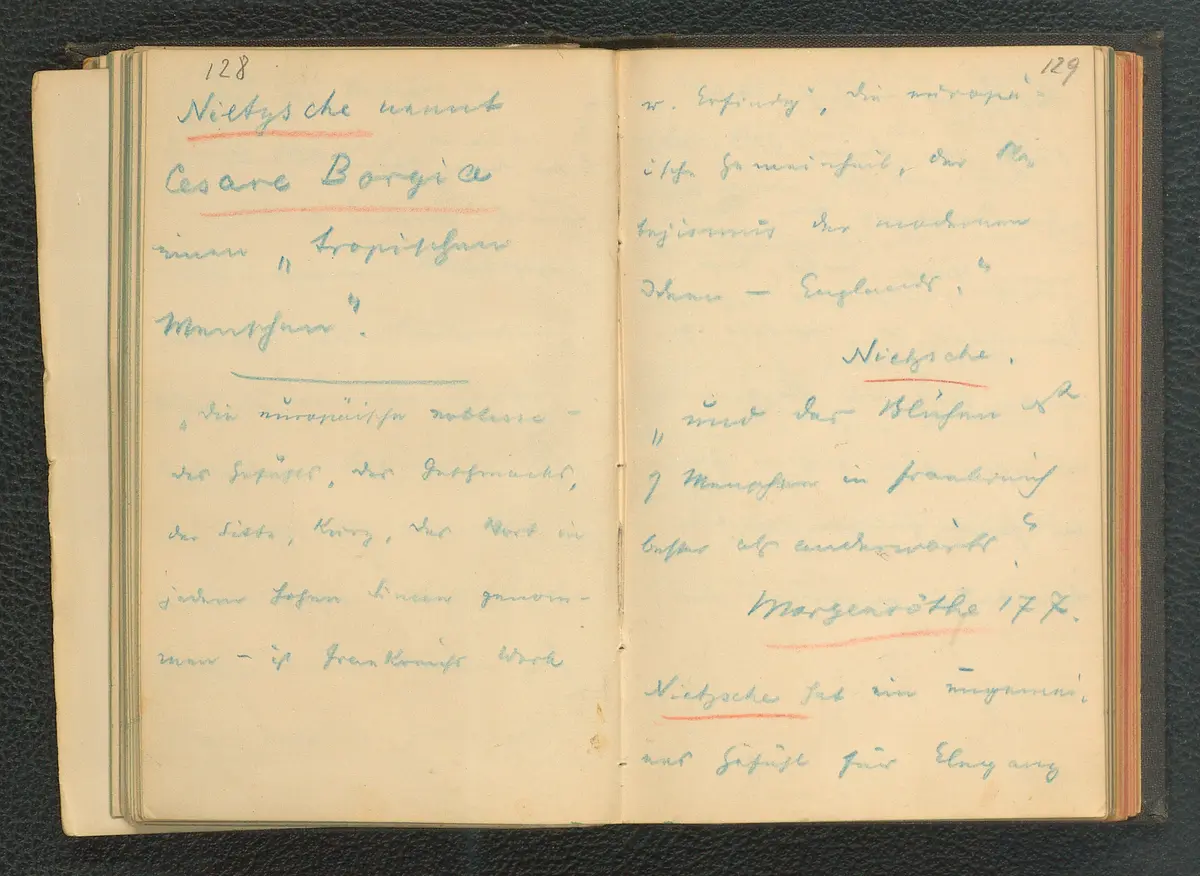 128
Nietzsche nennt
Cesare Borgia
einen „tropischen
Menschen“.
„die europäische noblesse –
des Gefühls, des Geschmacks,
der Sitte, kurz, das Wort in
jedem hohen Sinne genom-
men – ist Frankreichs Werk
129
u. Erfindg, die europä-
ische Gemeinheit, der Ple-
bejismus der modernen
Ideen – Englands.“
Nietzsche.
„und das Blühen
Menschen in Frankreich
besser als anderwärts“
Morgenröthe 177.
Nietzsche hat ein ungemei-
nes Gefühl für Eleganz